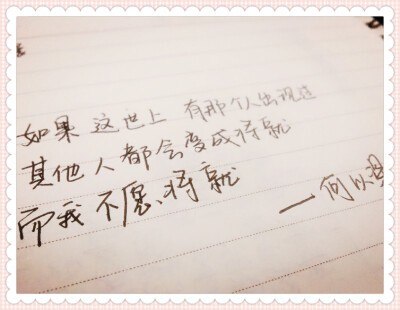 如果 这世上 有那个人出现过
其他人都会变成将就
而我不愿将就
—何以